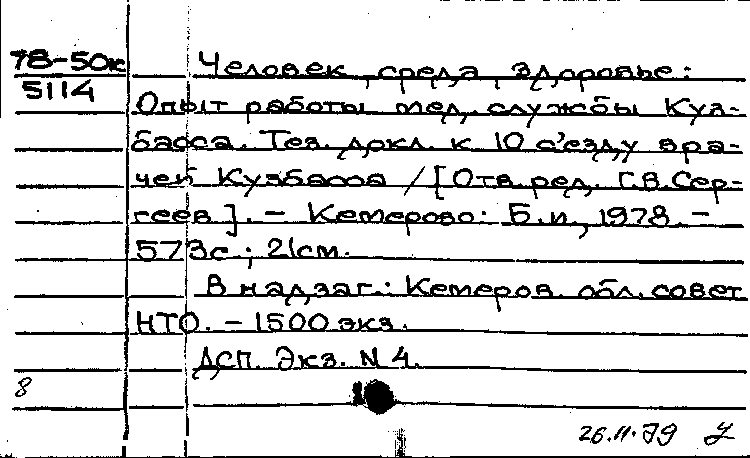 78-50к Человек, среда, здоровье:
5114
Опыт работы мед. службы Куз-
басса. Тез. докл. к 10 съезду вра-
чей Кузбасса / [Отв. ред. Г.В. Сер-
геев]. - Кемерово: Б.и., 1978. -
573с.; 21см.
В надзаг.: Кемеров. обл. совет
НТО. - 1500 экз.
ДСП. Экз. N 4.
8
26.11.79